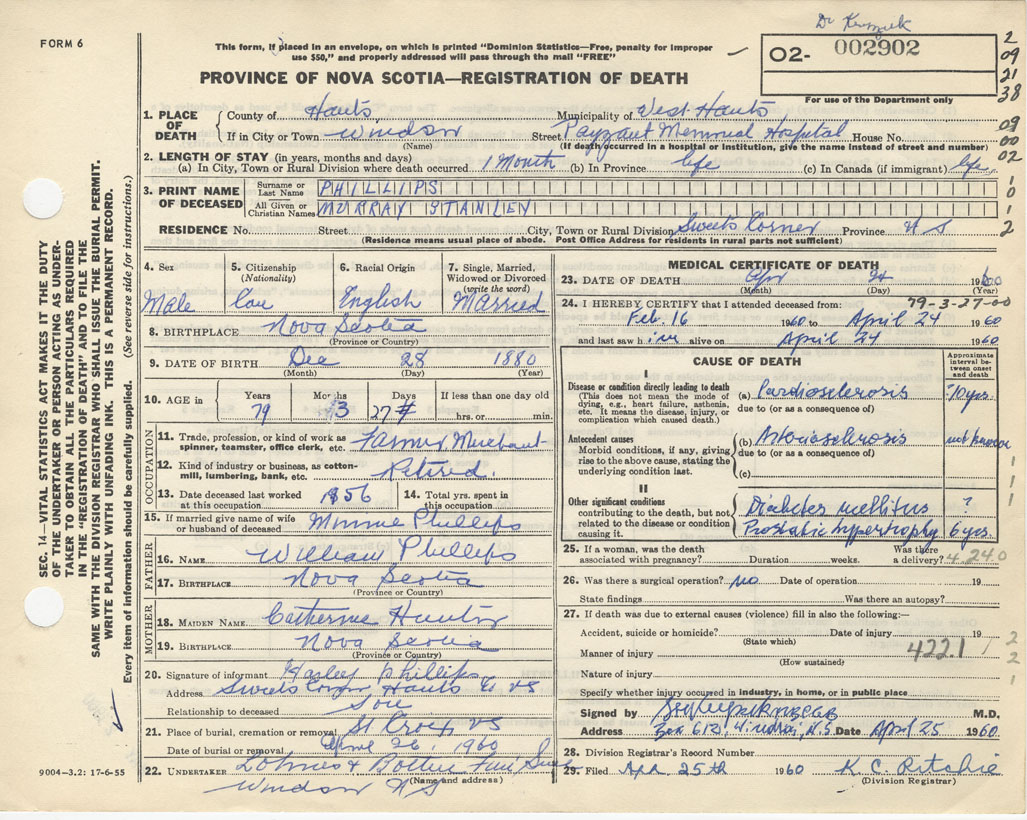 FORM 6
This form, if placed in an envelope, on which is printed "Dominion Statistics—Free, penalty for improper
use $50," and properly addressed will pass through the mail "FREE"
PROVINCE OF NOVA SCOTIA—REGISTRATION OF DEATH
Dr
O2- 002902
For use of the Department only
2
09
21
38
09
00
02
1
0
1
2
SEC. 14—VITAL STATISTICS ACT MAKES IT THE DUTY
OF THE UNDERTAKER OR PERSON ACTING AS UNDER-
TAKER TO OBTAIN ALL THE PARTICULARS REQUIRED
IN THE "REGISTRATION OF DEATH" AND TO FILE THE
SAME WITH THE DIVISION REGISTRAR WHO SHALL ISSUE THE BURIAL PERMIT.
WRITE PLAINLY WITH UNFADING INK. THIS IS A PERMANENT RECORD.
Every item of information should be carefully supplied. (See reverse side for instructions.)
1. PLACE OF DEATH
County of Hants Municipality of West Hants
If in City or Town Windsor Street Payzant Memorial Hospital House No.
(Name) (If death occurred in a hospital or institution, give the name instead of street and number)
2. LENGTH OF STAY (in years, months and days)
(a) In City, Town or Rural Division where death occurred 1 Month (b) In Province life (c) In Canada (if immigrant) life
3. PRINT NAME OF DECEASED
Surname or Last Name PHILLIPS
All Given or Christian Names MURRAY STANLEY
RESIDENCE No. Street City, Town or Rural Division Sweets Corner Province N S
(Residence means usual place of abode. Post Office Address for residents in rural parts not sufficient)
4. Sex Male
5. Citizenship (Nationality)
6. Racial Origin English
7. Single, Married, Widowed or Divorced (write the word) Married
8. BIRTHPLACE Nova Scotia
(Province or Country)
9. DATE OF BIRTH Dec 28 1880
(Month) (Day) (Year)
10. AGE in Years 79 Months 3 Days 27 If less than one day old hrs. or min.
OCCUPATION
11. Trade, profession, or kind of work as spinner, teamster, office clerk, etc. Farmer Merchant
12. Kind of industry or business, as cotton-mill, lumbering, bank, etc. Retired.
13. Date deceased last worked at this occupation 1956
14. Total yrs. spent in this occupation
15. If married give name of wife or husband of deceased Minnie Phillips
FATHER
16. NAME William Phillips
17. BIRTHPLACE Nova Scotia
(Province or Country)
MOTHER
18. MAIDEN NAME Catherine Hunter
19. BIRTHPLACE Nova Scotia
(Province or Country)
20. Signature of informant Harley Phillips
Address Sweets Corner, Hants Co NS
Relationship to deceased Son
21. Place of burial, cremation or removal St Croix NS
Date of burial or removal April 26, 1960
22. UNDERTAKER
(Name and address)
Windsor N S
9004—3.2: 17-6-55
MEDICAL CERTIFICATE OF DEATH
23. DATE OF DEATH Apr 24 1960
(Month) (Day) (Year)
24. I HEREBY CERTIFY that I attended deceased from: 79-3-27-00
Feb. 16 1960 to April 24 1960
and last saw him alive on April 24 1960
CAUSE OF DEATH
Approximate interval between onset and death
I
Disease or condition directly leading to death
(This does not mean the mode of dying, e.g., heart failure, asthenia, etc. It means the disease, injury, or complication which caused death.)
(a) Cardiosclerosis 10 yrs.
due to (or as a consequence of)
Antecedent causes
Morbid conditions, if any, giving rise to the above cause, stating the underlying condition last.
(b) Arteriosclerosis not known
due to (or as a consequence of)
(c)
II
Other significant conditions
contributing to the death, but not related to the disease or condition causing it.
Diabetes mellitus ?
Prostatic hypertrophy 6 yrs.
1
1
1
25. If a woman, was the death associated with pregnancy? Duration weeks. Was there a delivery? 4.240
26. Was there a surgical operation? no Date of operation 19
State findings Was there an autopsy?
27. If death was due to external causes (violence) fill in also the following:—
Accident, suicide or homicide? Date of injury 19
(State which)
Manner of injury 422.1
(How sustained)
Nature of injury
2
2
1
Specify whether injury occurred in industry, in home, or in public place
Signed by M.D.
Address Box 612, Windsor, N.S. Date April 25 1960
28. Division Registrar's Record Number
29. Filed Apr. 25th 1960 K. C. Ritchie
(Division Registrar)